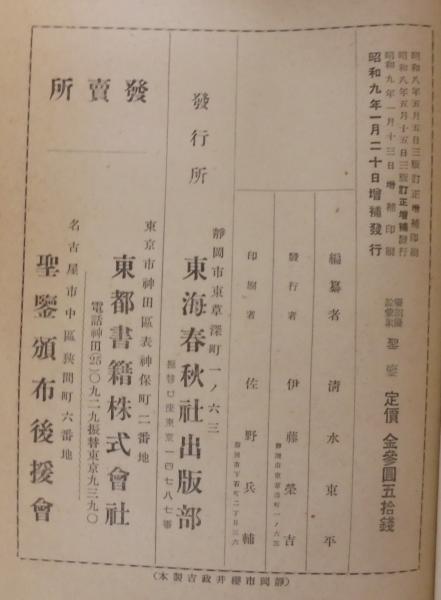 昭和八年五月五日三版訂正增補印刷
昭和八年五月十五日三版訂正增補發行
昭和九年一月十三日增補印刷
昭和九年一月二十日增補發行
聖鑒 定價 金參圓五拾錢
編纂者 淸水東平
發行者 伊藤榮吉
靜岡市東草深町一ノ六三
印刷者 佐野兵輔
靜岡市下石町二丁目三六
發行所
靜岡市東草深町一ノ六三
東海春秋社出版部
振替口座東京一四七八七番
發賣所
東京市神田區表神保町二番地
東都書籍株式會社
電話神田(25)〇九二九振替東京九三九〇
名古屋市中區狹間町六番地
聖鑒頒布後援會
(靜岡市櫻井政吉製本)